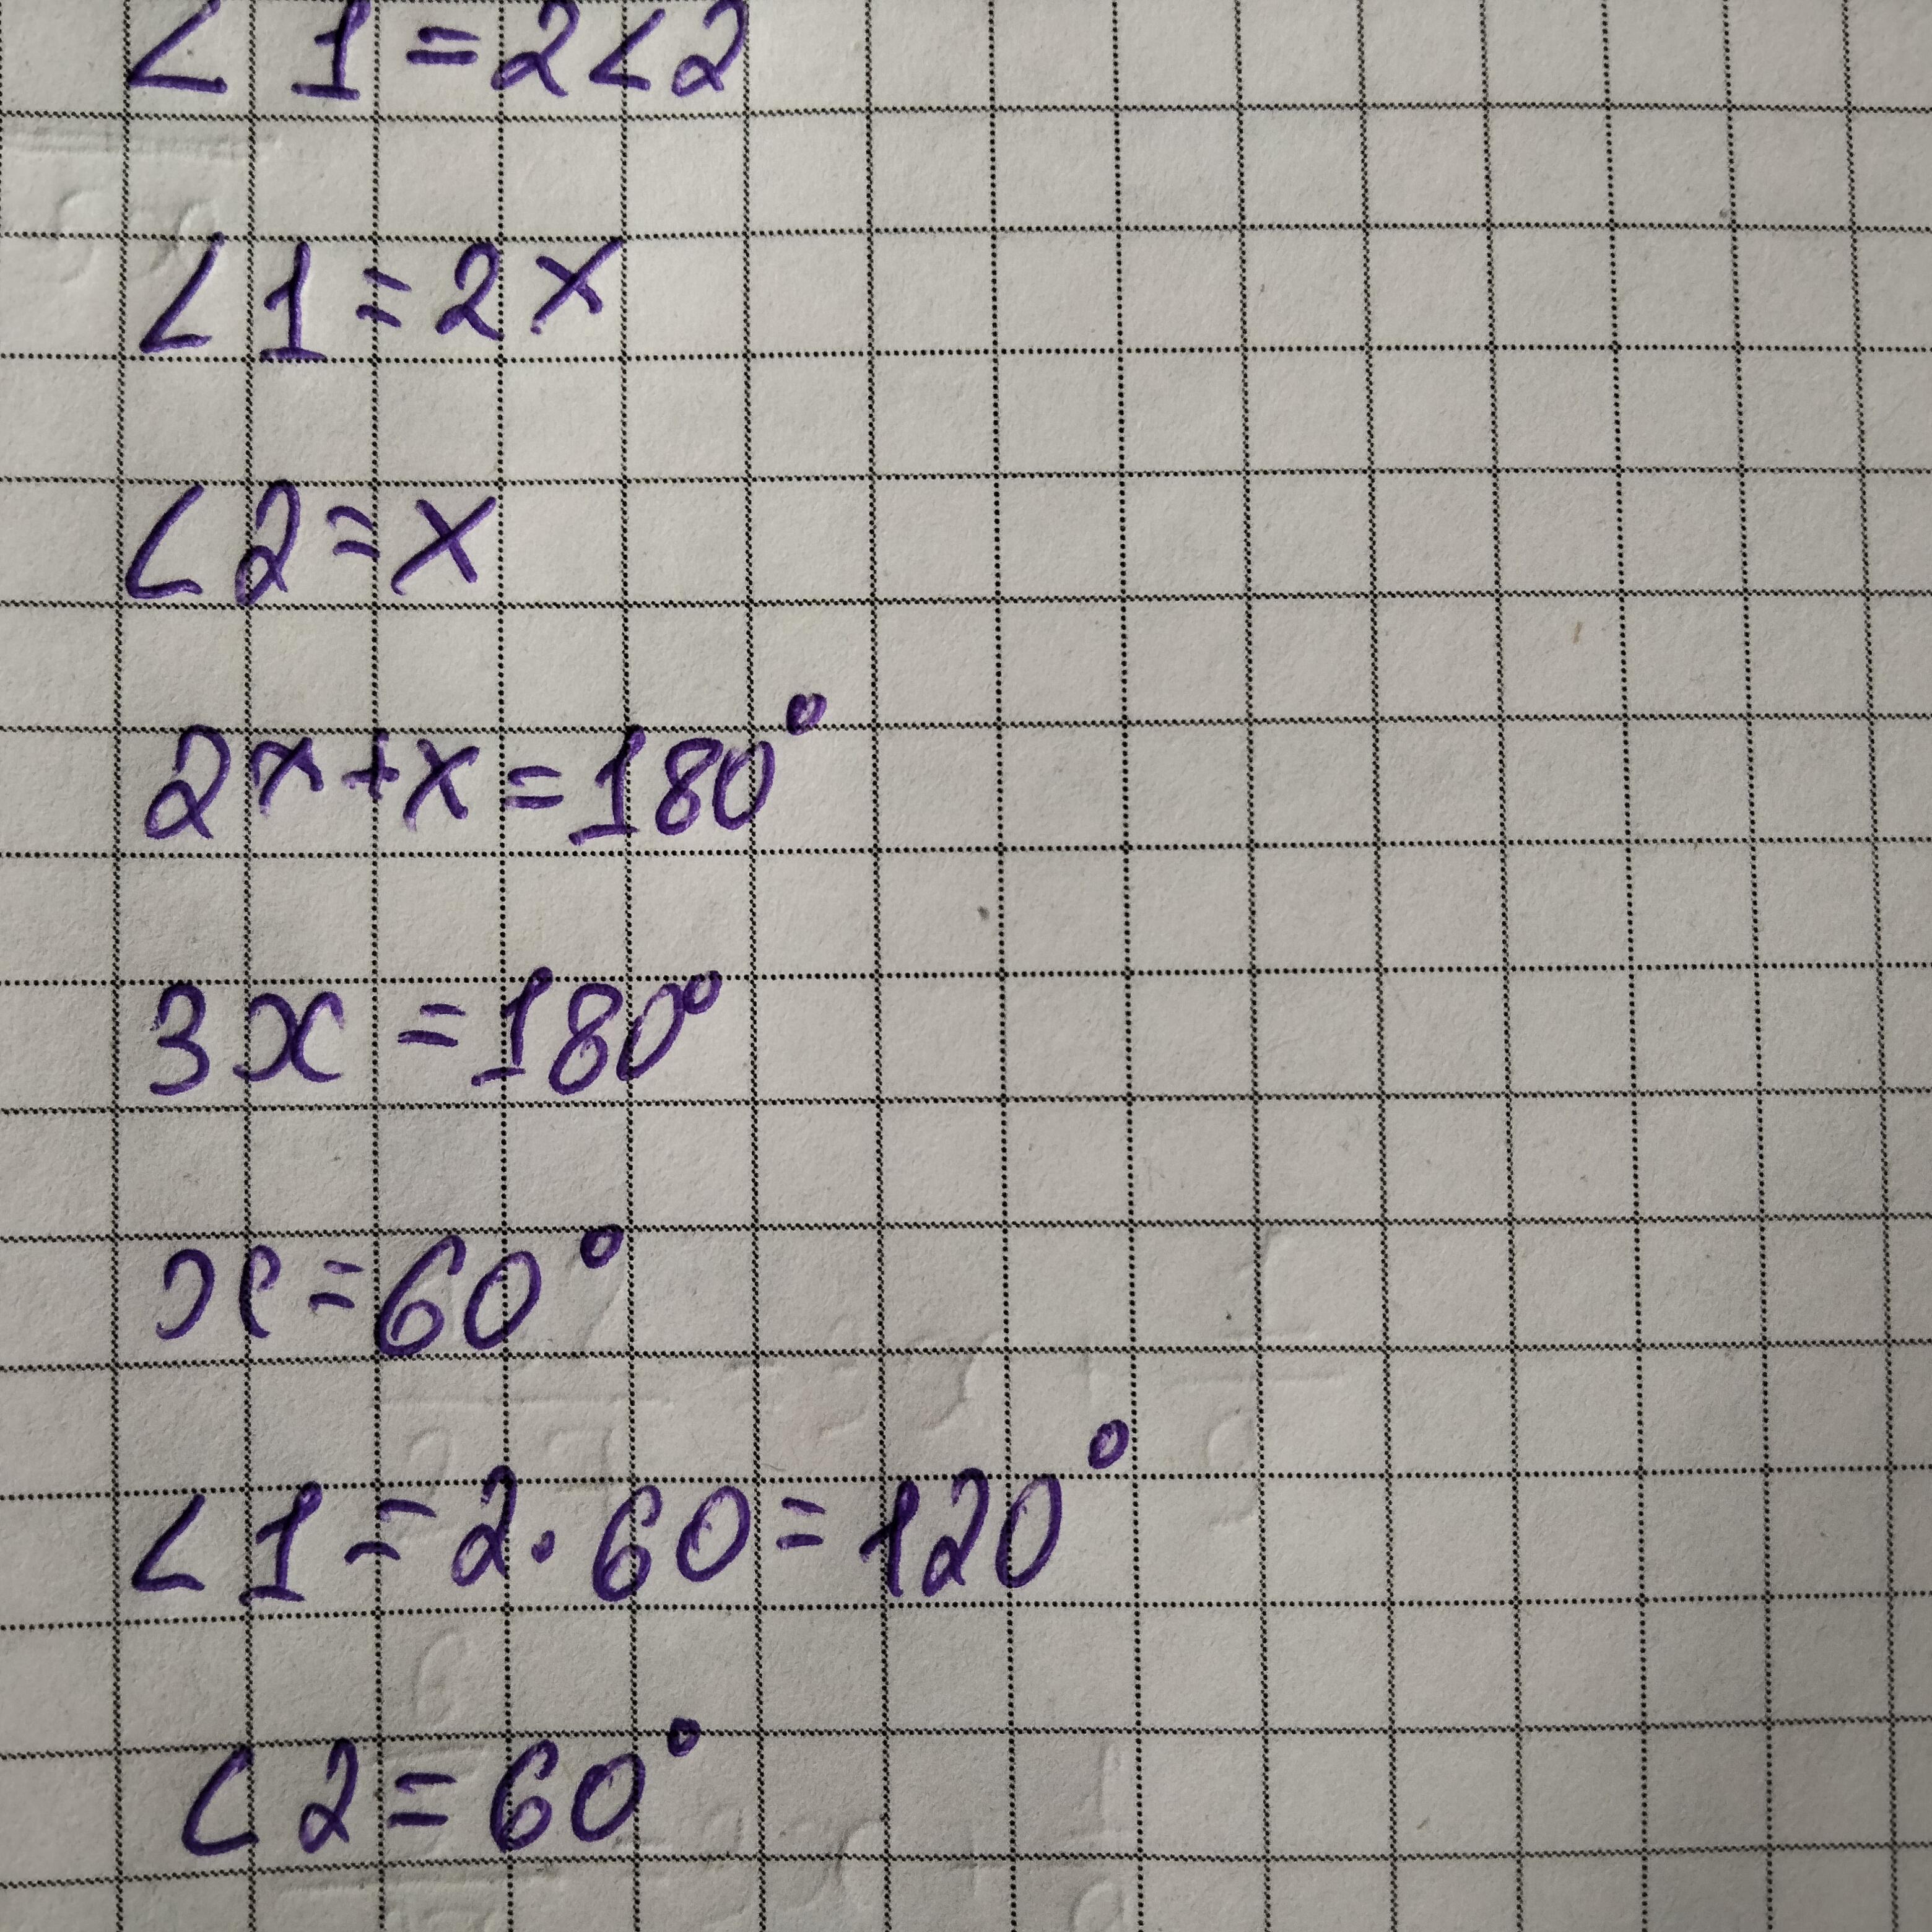 ∠1=2∠2
∠1=2x
∠2=x
2x+x=180°
3x=180°
x=60°
∠1=2·60=120°
∠2=60°